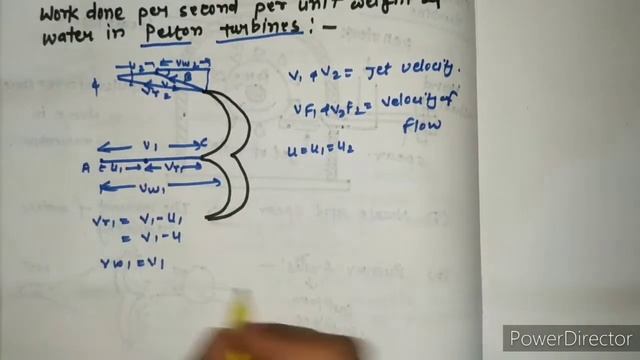 work done per second per unit weight of
water in Pelton turbines :-
V1 & V2 = Jet velocity.
VF1 & V2F2 = velocity of
flow
u = u1 = u2
V1
A
C
u1
Vr1
Vw1
Vr1 = V1 - u1
= V1 - u
Vw1 = V1
PowerDirector